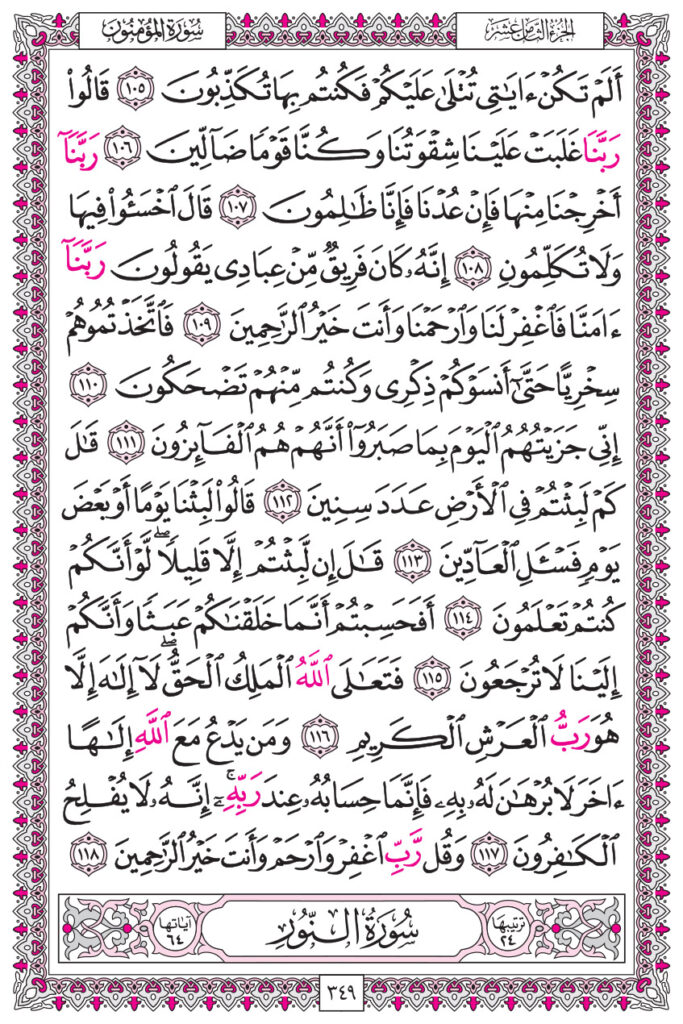 الجزء الثامن عشر
سورة المؤمنون
أَلَمْ تَكُنْ ءَايَـٰتِى تُتْلَىٰ عَلَيْكُمْ فَكُنتُم بِهَا تُكَذِّبُونَ ١٠٥ قَالُوا۟
رَبَّنَا غَلَبَتْ عَلَيْنَا شِقْوَتُنَا وَكُنَّا قَوْمًا ضَآلِّينَ ١٠٦ رَبَّنَآ
أَخْرِجْنَا مِنْهَا فَإِنْ عُدْنَا فَإِنَّا ظَـٰلِمُونَ ١٠٧ قَالَ ٱخْسَـُٔوا۟ فِيهَا
وَلَا تُكَلِّمُونِ ١٠٨ إِنَّهُۥ كَانَ فَرِيقٌ مِّنْ عِبَادِى يَقُولُونَ رَبَّنَآ
ءَامَنَّا فَٱغْفِرْ لَنَا وَٱرْحَمْنَا وَأَنتَ خَيْرُ ٱلرَّٰحِمِينَ ١٠٩ فَٱتَّخَذْتُمُوهُمْ
سِخْرِيًّا حَتَّىٰٓ أَنسَوْكُمْ ذِكْرِى وَكُنتُم مِّنْهُمْ تَضْحَكُونَ ١١٠
إِنِّى جَزَيْتُهُمُ ٱلْيَوْمَ بِمَا صَبَرُوٓا۟ أَنَّهُمْ هُمُ ٱلْفَآئِزُونَ ١١١ قَـٰلَ
كَمْ لَبِثْتُمْ فِى ٱلْأَرْضِ عَدَدَ سِنِينَ ١١٢ قَالُوا۟ لَبِثْنَا يَوْمًا أَوْ بَعْضَ
يَوْمٍ فَسْـَٔلِ ٱلْعَآدِّينَ ١١٣ قَـٰلَ إِن لَّبِثْتُمْ إِلَّا قَلِيلًا ۖ لَّوْ أَنَّكُمْ
كُنتُمْ تَعْلَمُونَ ١١٤ أَفَحَسِبْتُمْ أَنَّمَا خَلَقْنَـٰكُمْ عَبَثًا وَأَنَّكُمْ
إِلَيْنَا لَا تُرْجَعُونَ ١١٥ فَتَعَـٰلَى ٱللَّهُ ٱلْمَلِكُ ٱلْحَقُّ ۖ لَآ إِلَـٰهَ إِلَّا
هُوَ رَبُّ ٱلْعَرْشِ ٱلْكَرِيمِ ١١٦ وَمَن يَدْعُ مَعَ ٱللَّهِ إِلَـٰهًا
ءَاخَرَ لَا بُرْهَـٰنَ لَهُۥ بِهِۦ فَإِنَّمَا حِسَابُهُۥ عِندَ رَبِّهِۦٓ ۚ إِنَّهُۥ لَا يُفْلِحُ
ٱلْكَـٰفِرُونَ ١١٧ وَقُل رَّبِّ ٱغْفِرْ وَٱرْحَمْ وَأَنتَ خَيْرُ ٱلرَّٰحِمِينَ ١١٨
ترتيبها
٢٤
سُورَةُ النُّورِ
آياتها
٦٤
٣٤٩